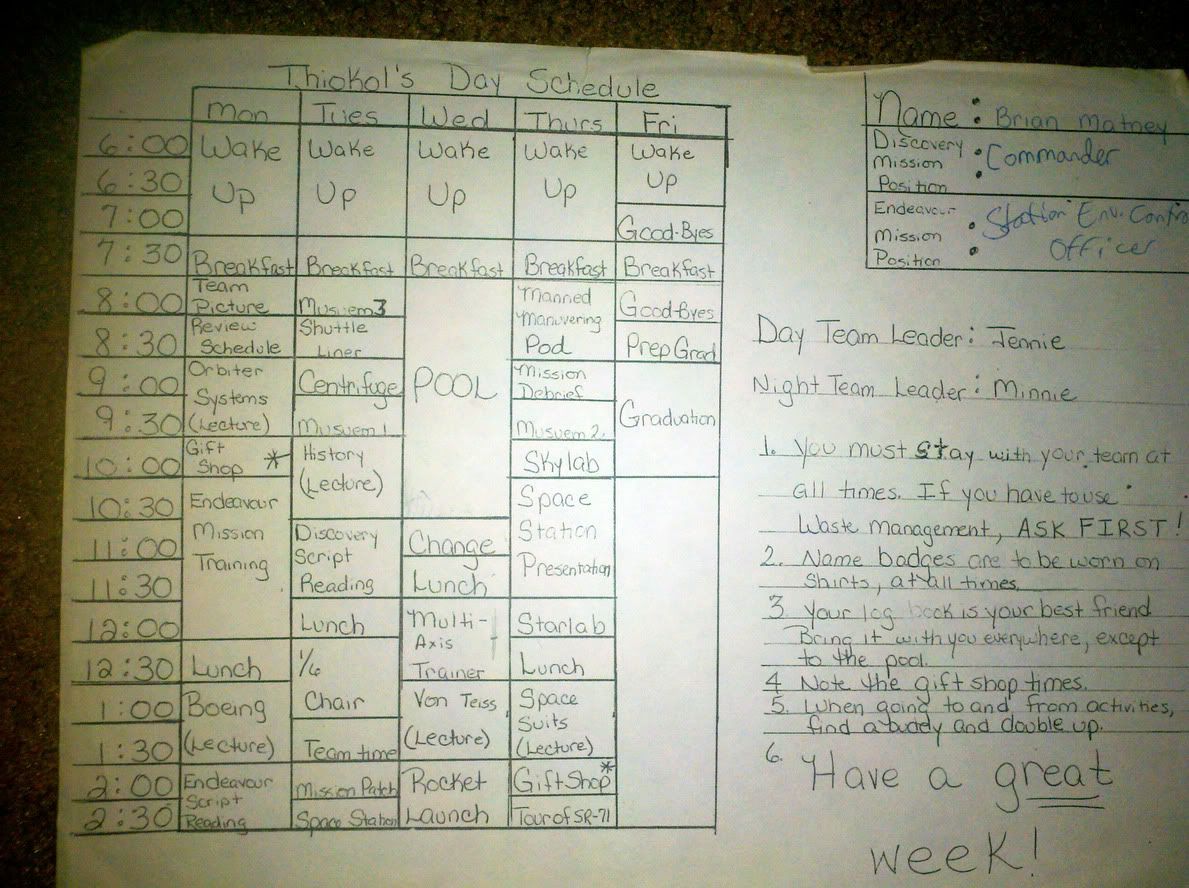 Thiokol's Day Schedule
Mon Tues Wed Thurs Fri
6:00 Wake Wake Wake Wake Wake
6:30 Up Up Up Up Up
7:00 Good-Byes
7:30 Breakfast Breakfast Breakfast Breakfast Breakfast
8:00 Team Picture Musuem 3 Manned Good-Byes
8:30 Review Schedule Shuttle Liner Manuvering Pod Prep Grad
9:00 Orbiter Systems Centrifuge POOL Mission Debrief
9:30 (Lecture) Musuem 1 Musuem 2 Graduation
10:00 Gift Shop * History Skylab
10:30 Endeavour (Lecture) Space
11:00 Mission Discovery Script Change Station
11:30 Training Reading Lunch Presentation
12:00 Lunch Multi-Axis Starlab
12:30 Lunch 1/6 Trainer Lunch
1:00 Boeing Chair Von Teiss Space Suits
1:30 (Lecture) Team time (Lecture) (Lecture)
2:00 Endeavour Script Mission Patch Rocket Gift Shop *
2:30 Reading Space Station Launch Tour of SR-71
Name: Brian Matney
Discovery
Mission : Commander
Position
Endeavour : Station Env. Contro
Mission Officer
Position
Day Team Leader: Jennie
Night Team Leader: Minnie
1. You must stay with your team at
all times. If you have to use
Waste management, ASK FIRST!
2. Name badges are to be worn on
shirts, at all times.
3. Your log book is your best friend
Bring it with you everywhere, except
to the pool.
4 Note the gift shop times.
5. When going to and from activities,
find a buddy and double up.
6. Have a great
week!